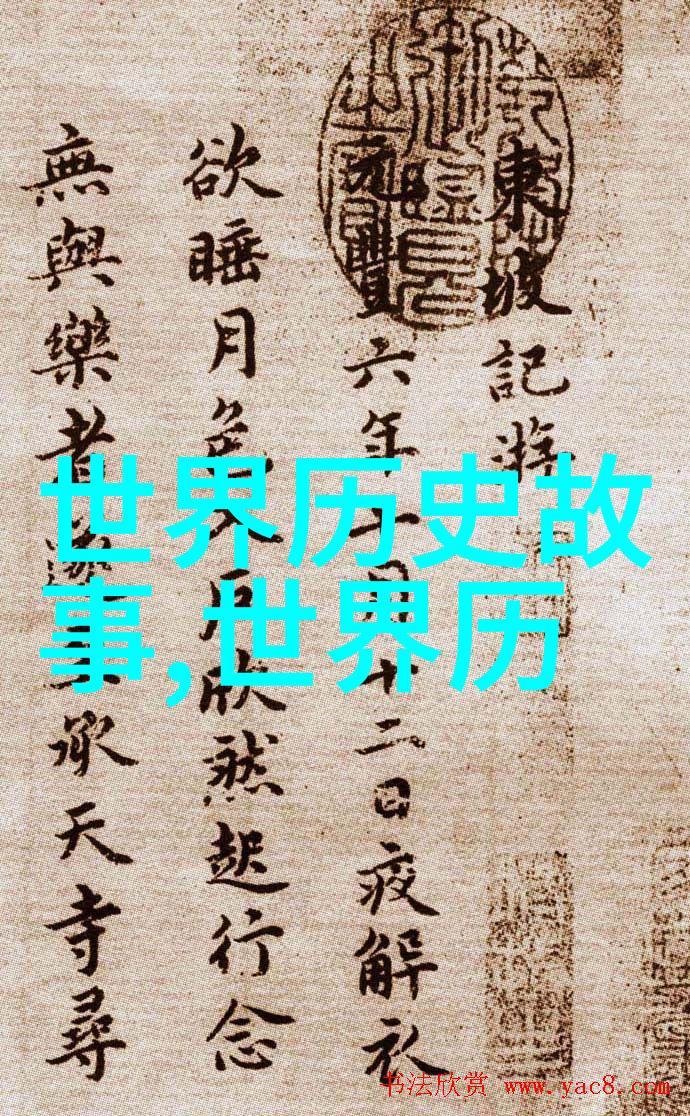 東坡記游
元豐六年十月十二日夜解衣
欲睡月色入戶欣然起行念
無與樂者遂至承天寺尋
世界历史故
事,世界历
书法欣赏 www.yac8.com